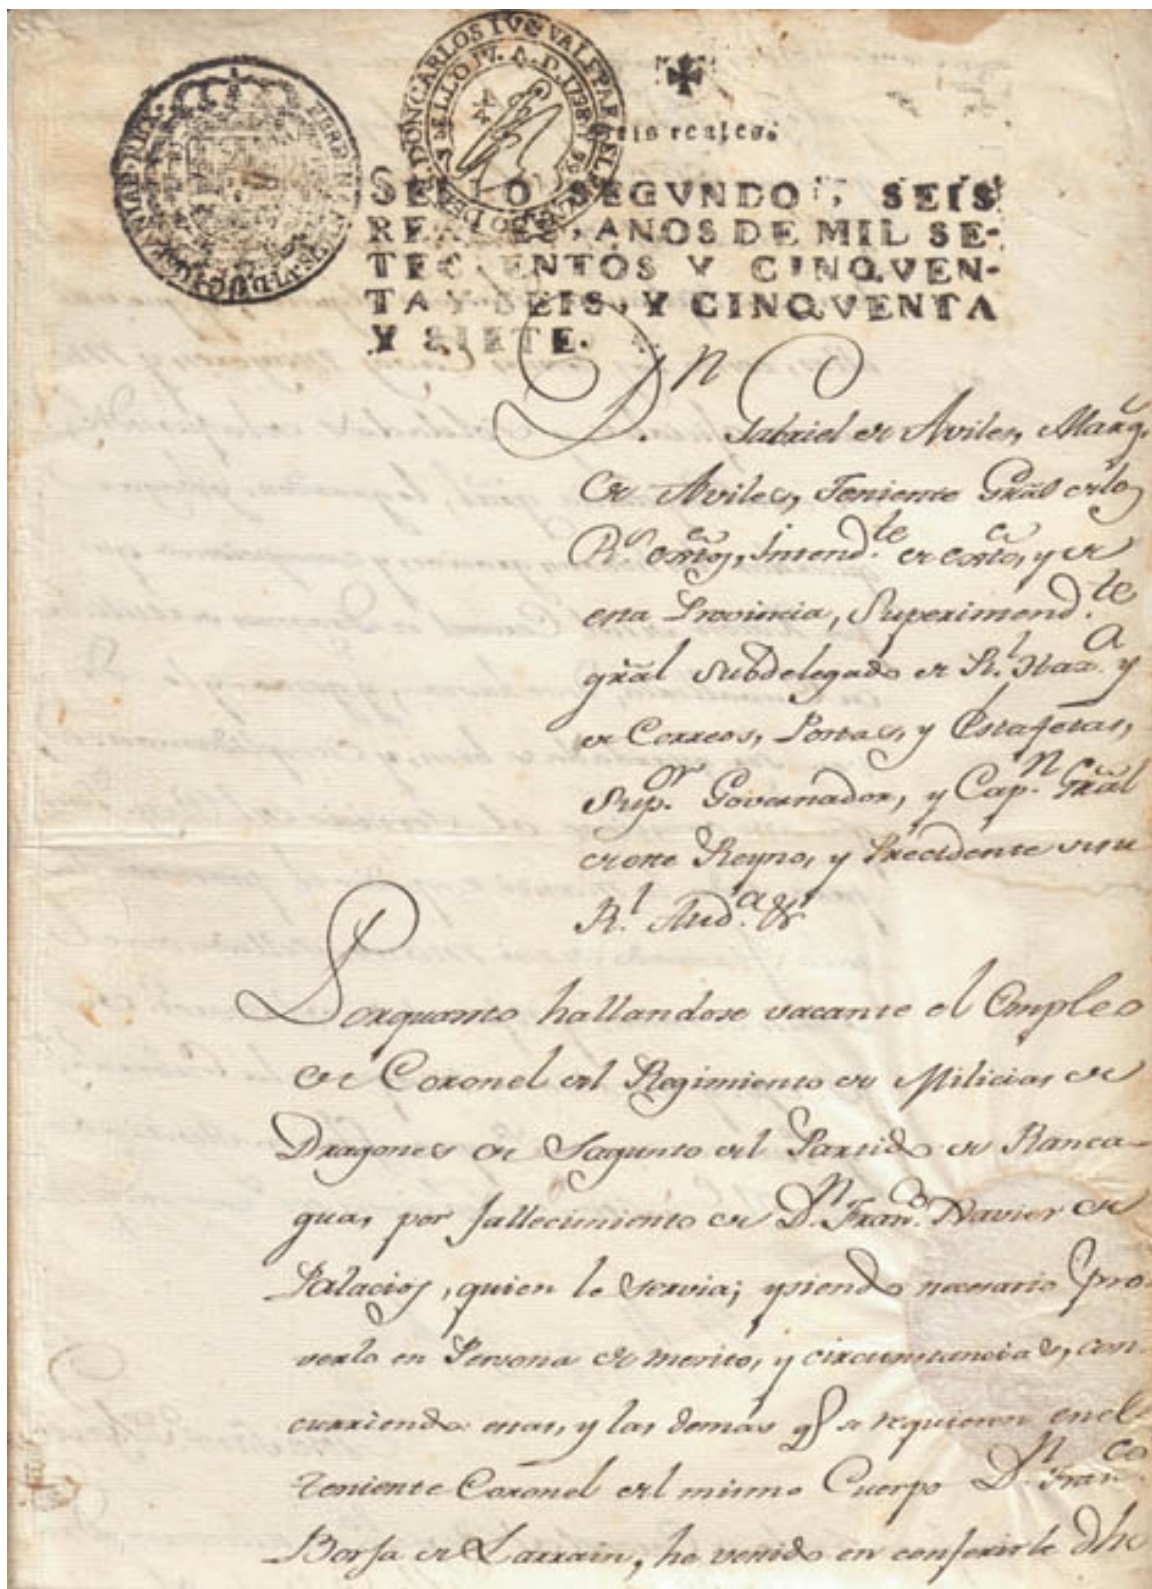 DON CARLOS IV
SELLO IV. A. D. 1798 Y 99
Seis reales.
SELLO SEGVNDO, SEIS
REALES, ANOS DE MIL SE-
TECIENTOS Y CINQVEN-
TA Y SEIS, Y CINQVENTA
Y SIETE.
Dn
Gabriel de Aviles, Marq.
de Aviles, Teniente Gral de los
Rs. Extos, Intend.te de exto, y de
esta Provincia, Superintend.te
gral Subdelegado de Rl. Haz.a y
de Correos, Postas, y Estafetas,
Sup.or Governador, y Cap.n Gral
de este Reyno, y Precidente de su
Rl. Aud.a &
Porquanto hallandose vacante el Empleo
de Coronel del Regimiento de Milicias de
Dragones de Sagunto del Partido de Ranca-
gua, por fallecimiento de Dn. Fran.co Xavier de
Palacios, quien lo servia; y siendo necesario pro-
veerlo en Persona de merito, y circunstancias, con-
curriendo estas, y las demas q se requieren en el
Teniente Coronel del mismo Cuerpo Dn. Fran.co
Borja de Larrain, he venido en conferirle dho